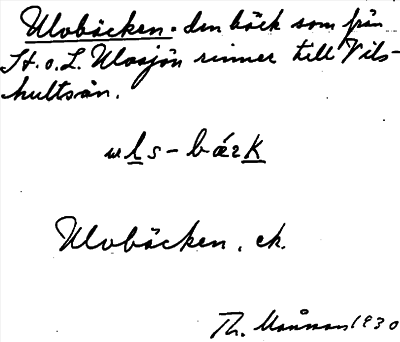 Ulvbäcken. den bäck som från
St. o. L. Ulvsjön rinner till Vils-
hultsån.
uls-bæzk
Ulvbäcken, ek.
Th. Månsson 1930